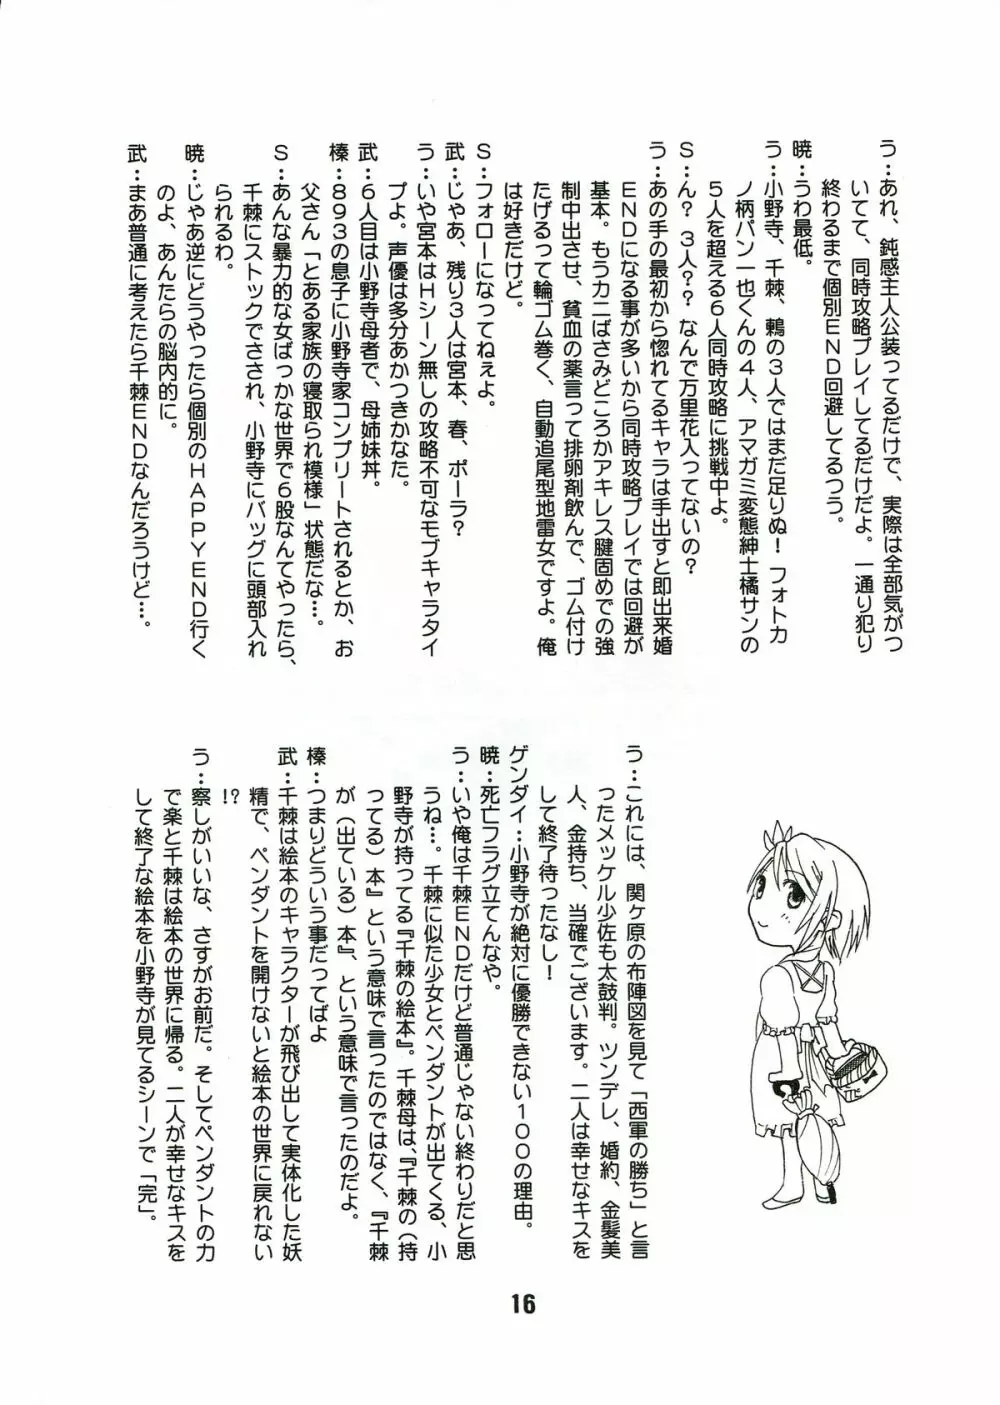 う：あれ、鈍感主人公装ってるだけで、実際は全部気がつ
いてて、同時攻略プレイしてるだけだよ。一通り犯り
終わるまで個別ＥＮＤ回避してるつう。
暁：うわ最低。
う：小野寺、千棘、鶫の３人ではまだ足りぬ！フォトカ
ノ柄パン一也くんの４人、アマガミ変態紳士橘サンの
５人を超える６人同時攻略に挑戦中よ。
Ｓ：ん？３人？？なんで万里花入ってないの？
う：あの手の最初から惚れてるキャラは手出すと即出来婚
ＥＮＤになる事が多いから同時攻略プレイでは回避が
基本。もうカニばさみどころかアキレス腱固めでの強
制中出させ、貧血の薬言って排卵剤飲んで、ゴム付け
たげるって輪ゴム巻く、自動追尾型地雷女ですよ。俺
は好きだけど。
Ｓ：フォローになってねぇよ。
武：じゃあ、残り３人は宮本、春、ポーラ？
う：いや宮本はＨシーン無しの攻略不可なモブキャラタイ
プよ。声優は多分あかつきかなた。
武：６人目は小野寺母者で、母姉妹丼。
榛：８９３の息子に小野寺家コンプリートされるとか、お
父さん「とある家族の寝取られ模様」状態だな…。
Ｓ：あんな暴力的な女ばっかな世界で６股なんてやったら、
千棘にストックでさされ、小野寺にバッグに頭部入れ
られるわ。
暁：じゃあ逆にどうやったら個別のＨＡＰＰＹＥＮＤ行く
のよ、あんたらの脳内的に。
武：まあ普通に考えたら千棘ＥＮＤなんだろうけど…。
う：これには、関ヶ原の布陣図を見て「西軍の勝ち」と言
ったメッケル少佐も太鼓判。ツンデレ、婚約、金髪美
人、金持ち、当確でございます。二人は幸せなキスを
して終了待ったなし！
ゲンダイ：小野寺が絶対に優勝できない１００の理由。
暁：死亡フラグ立てんなや。
う：いや俺は千棘ＥＮＤだけど普通じゃない終わりだと思
うね…。千棘に似た少女とペンダントが出てくる、小
野寺が持ってる『千棘の絵本』。千棘母は、『千棘の（持
ってる）本』という意味で言ったのではなく、『千棘
が（出ている）本』、という意味で言ったのだよ。
榛：つまりどういう事だってばよ
武：千棘は絵本のキャラクターが飛び出して実体化した妖
精で、ペンダントを開けないと絵本の世界に戻れない
!?
う：察しがいいな、さすがお前だ。そしてペンダントの力
で楽と千棘は絵本の世界に帰る。二人が幸せなキスを
して終了な絵本を小野寺が見てるシーンで「完」。
16